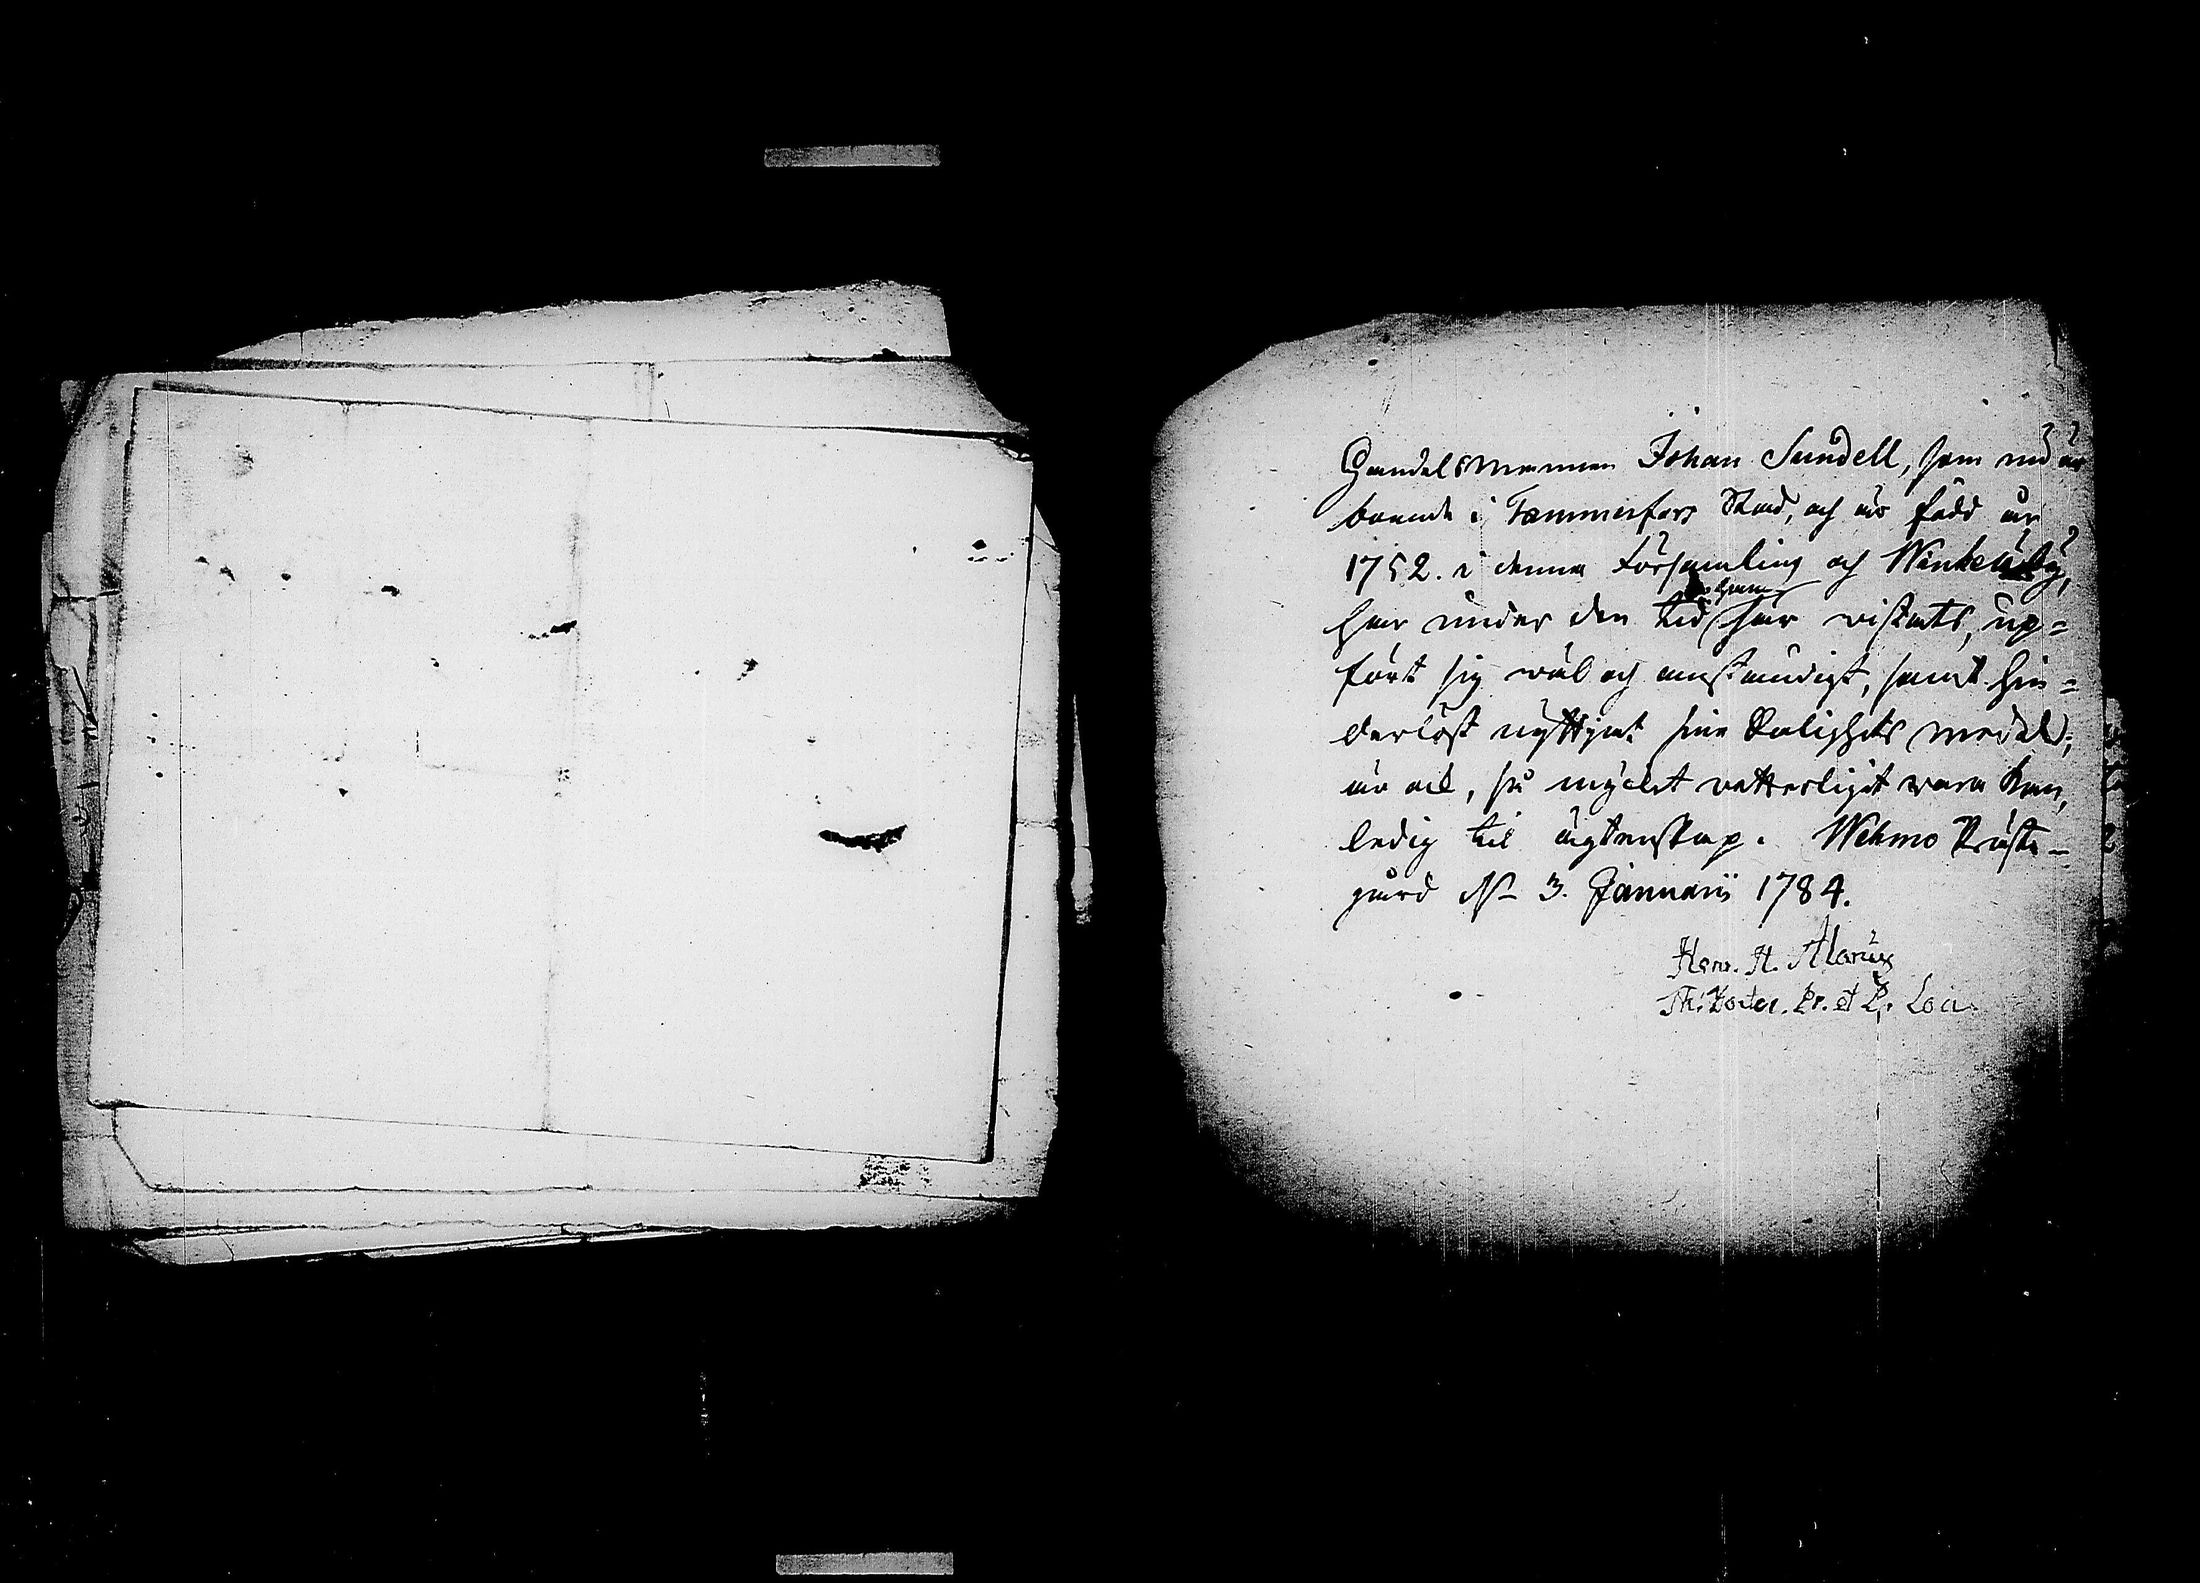 Handelsmannen Johan Sundell, som nu är
boende i Tammerfors Stad, och är född år
1752. i denna Församling och Winkelä by,
har under den tid han här vistats, up=
fört sig wäl och anständigt, samt hin=
derlöst nyttjat sine Salighets medel;
är ock, så mycket vetterligit wara kan,
ledig til ägtenskap. Wehmo Präste-
gård d. 3. Januarii 1784.
Henr. H. Alanus
Th: Doctor. Pr. et P. Loci